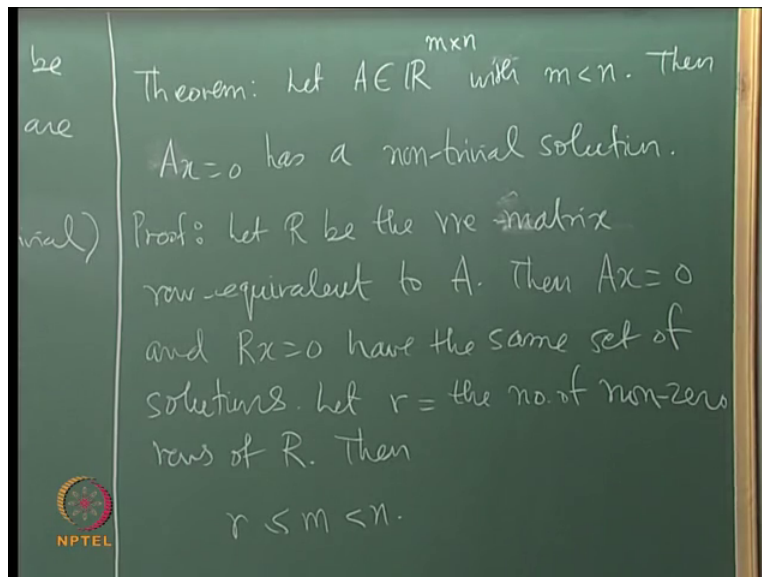 be
are
ivial)
Theorem: Let A ∈ ℝ^{m×n} with m < n. Then
Ax = 0 has a non-trivial solution.
Proof: Let R be the rre matrix
row-equivalent to A. Then Ax = 0
and Rx = 0 have the same set of
solutions. Let r = the no. of non-zero
rows of R. Then
r ≤ m < n.
NPTEL